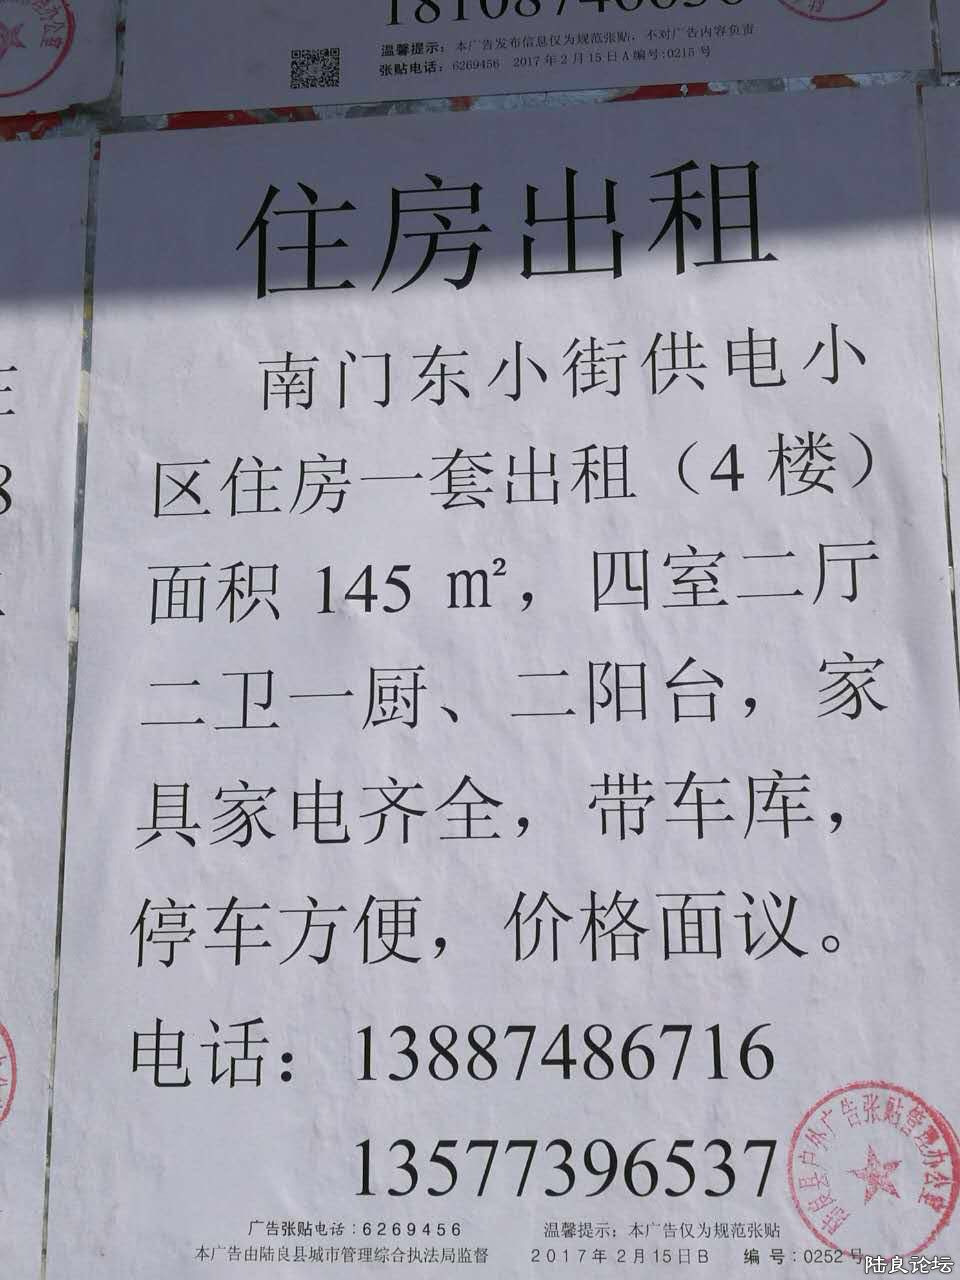 温馨提示：本广告发布信息仅为规范张贴，不对广告内容负责
张贴电话：6269456 2017年2月15日A编号:0215号
住房出租
南门东小街供电小
区住房一套出租（4楼）
面积 145 ㎡，四室二厅
二卫一厨、二阳台，家
具家电齐全，带车库，
停车方便，价格面议。
电话：13887486716
13577396537
陆良县户外广告张贴管理办公室
广告张贴电话：6269456 温馨提示：本广告仅为规范张贴
本广告由陆良县城市管理综合执法局监督 2017年2月15日B 编号:0252号
陆良论坛